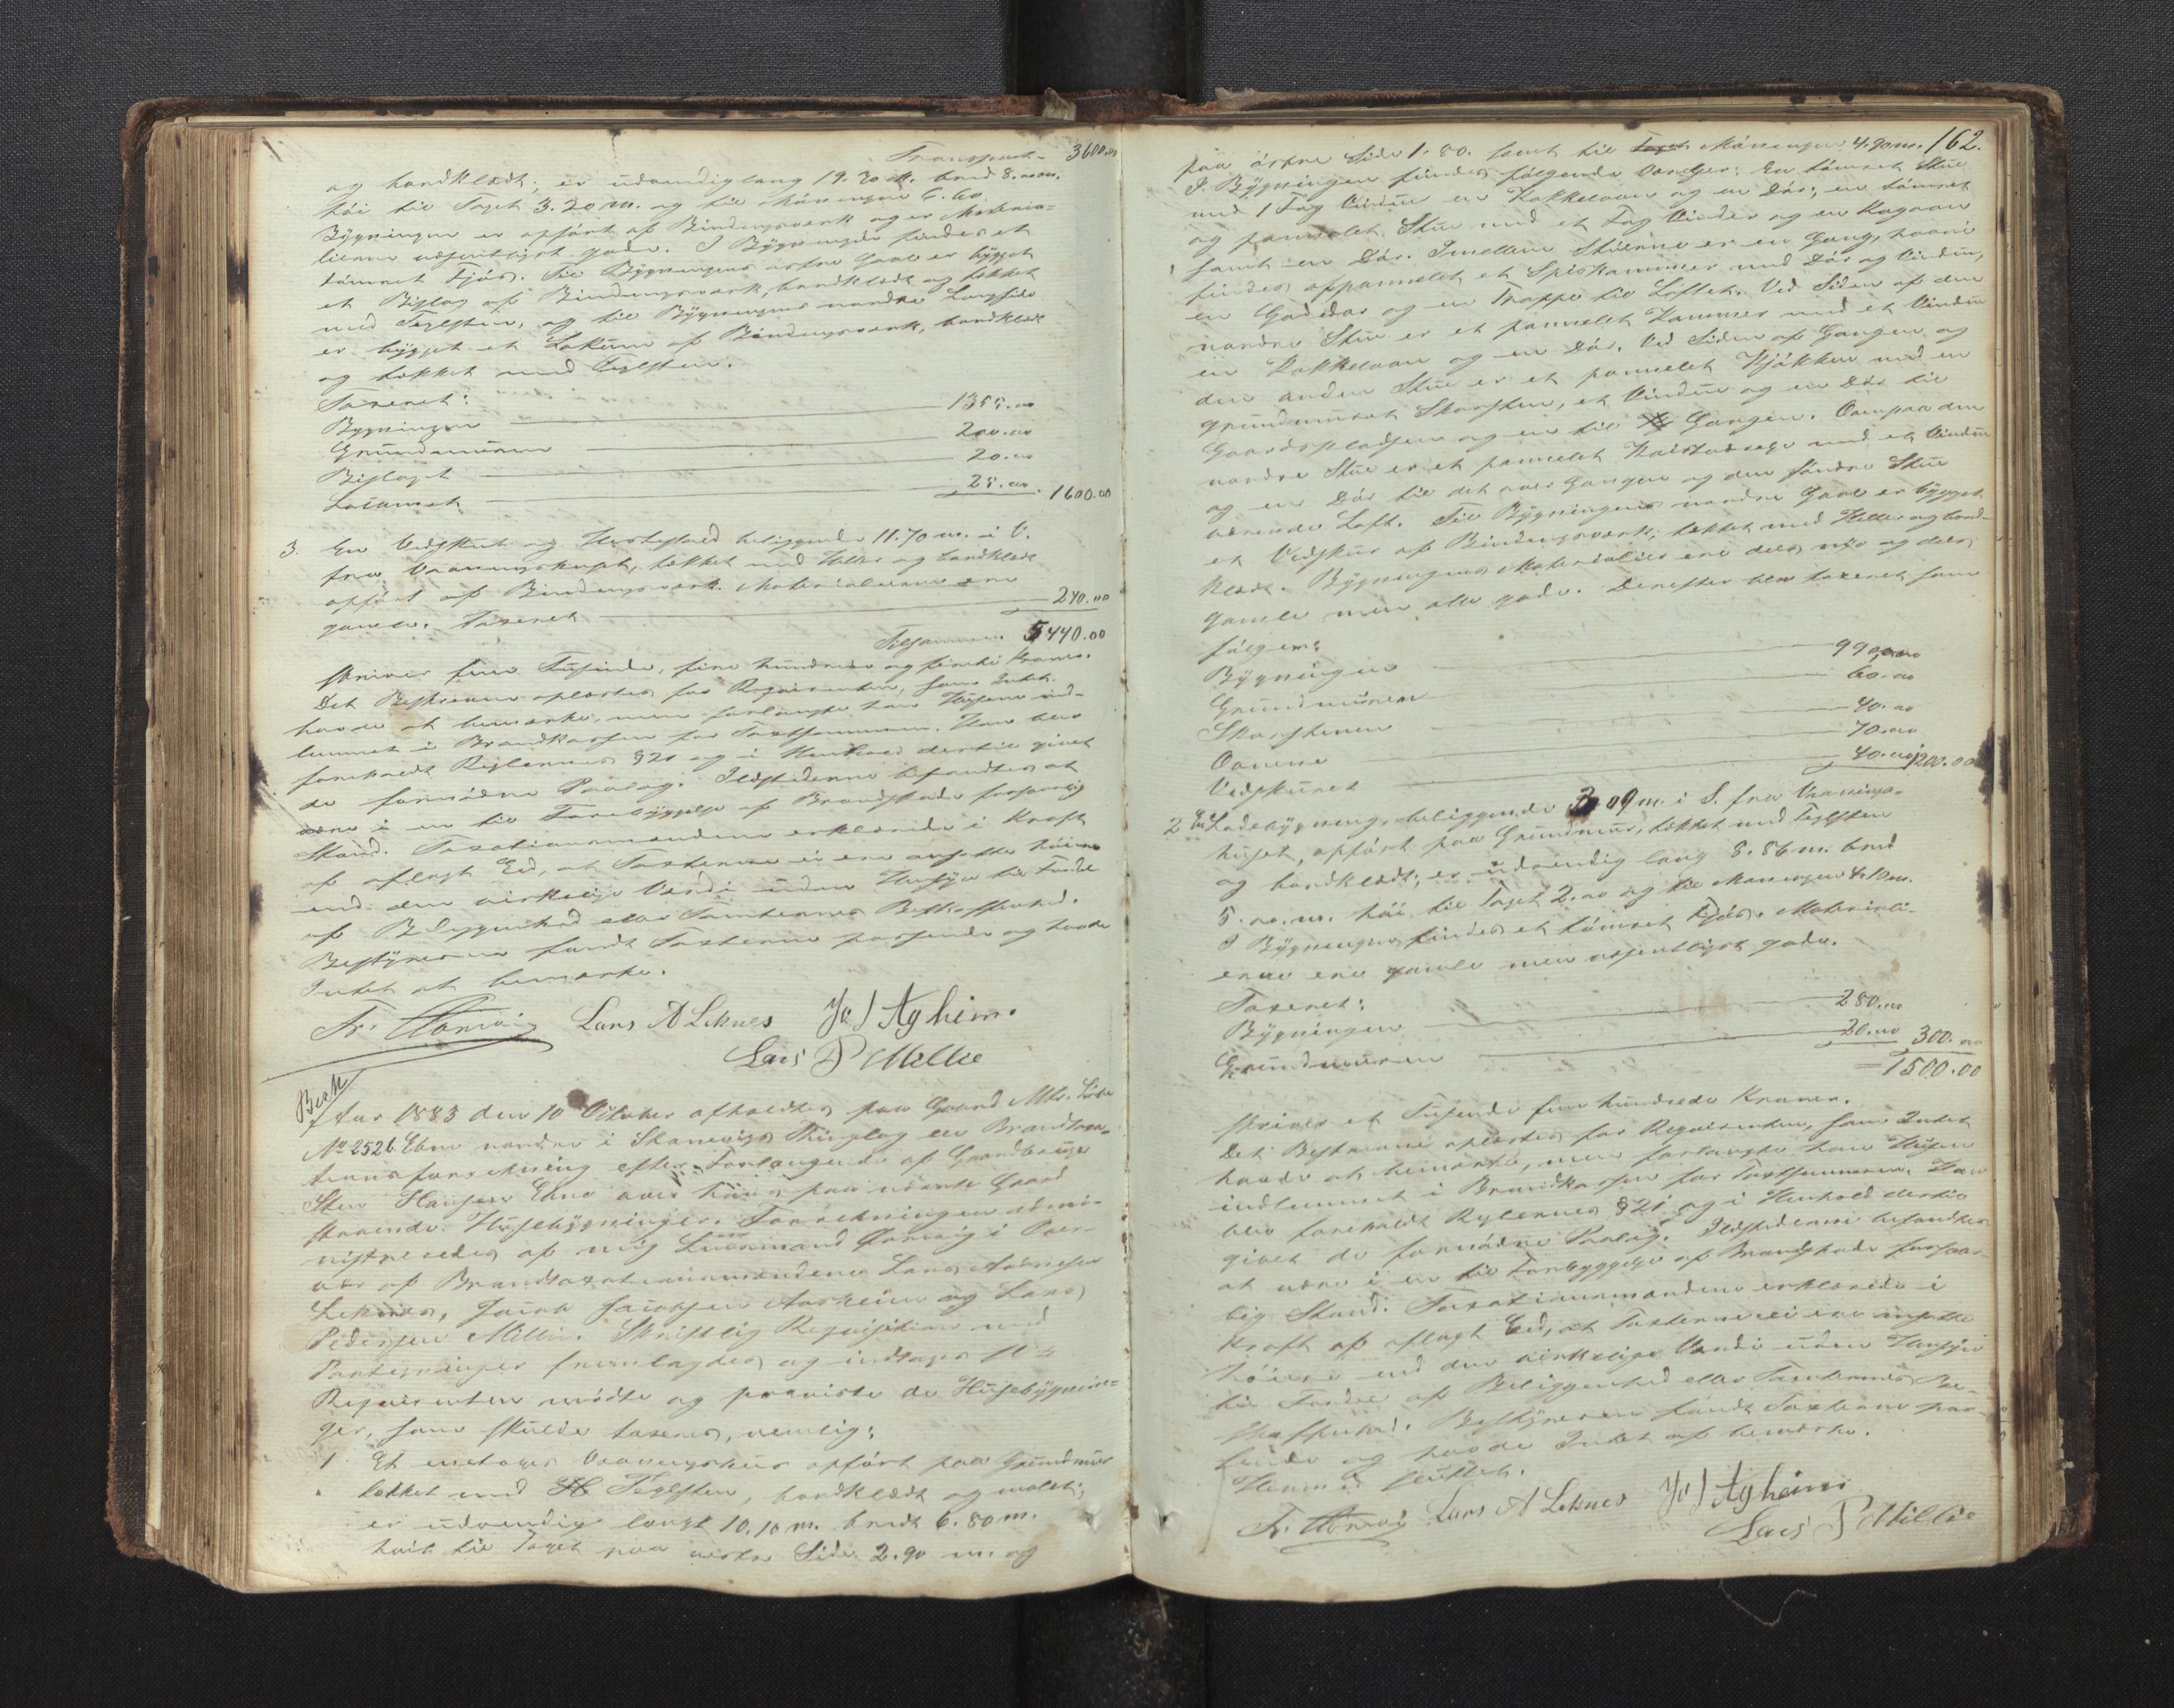 Transport 3600.00
og bordklædt; er udvendig lang 19.30 m. bred 8.00 m.
høi til Taget 3.20 m. og til Møningen 6.60
Bygningen er opført af Bindingsværk og er Materia-
lierne væsentligst gode. I Bygningen findes et
tømret Fjøs. Til Bygningens østre Gavl er bygget
et Bislag af Bindingsværk, bordklædt og tækket
med Teglsten, og til Bygningens nordre Langside
er bygget et Lokum af Bindingsværk, bordklædt
og tækket med Teglsten.
Taxeret:
Bygningen 1355.00
Grundmuren 200.00
Bislaget 20.00
Locumet 25.00 1600.00
3. En Vedskut og Hestestald beliggende 11.70 m. i V.
fra Vaaningshuset, tækket med Heller og bordklædt
opført af Bindingsværk. Materialierne ere
gamle. Taxeret 240.00
Tilsammen 5440.00
skriver fem Tusinde, fire hundrede og firti Kroner.
Det Beskrevne oplæstes for Requirenten, som Intet
havde at bemærke, men forlangte han Husene ind-
lemmet i Brandkassen for Taxtsummen. Han blev
foreholdt Reglernes §21 og i Henhold dertil givet
de fornødne Paalæg. Ildstederne befandtes at
være i en til Forebyggelse af Brandskade forsvarlig
Stand. Taxationsmændene erklærede i Kraft
af aflagt Eed, at Taxterne ei ere ansatte høiere
end den virkelige Værdi uden Hensyn til Fordel
af Beliggenhed eller Tomternes Beskaffenhed.
Bestyreren fandt Taxterne passende og havde
Intet at bemærke.
Fr. Lars A Leknes J J Agheim
Lars P Millie
Aar 1883 den 10 Oktober afholdtes paa Gaard Mtr. Løbe
No 2526 Ebne nordre i Skanevigs Thinglag en Brandtax-
ationsforretning efter Forlangende af Gaardbruger
Sten Hansen Ebne over hans paa nævnte Gaard
staaende Husebygninger. Forretningen admi-
nistreredes af mig Lensmand i Over-
vær af Brandtaxationsmændene Lars
Leknes, Jacob Jacobsen Aarheim og Lars
Pedersen Millie. Skriftlig Requisition med
Paategninger fremlagdes og indtages
Requirenten mødte og paaviste de Husebygnin-
ger, som skulde taxeres, nemlig:
1 Et enetages Vaaningshus opført paa Grundmur
tækket med Teglsten, bordklædt og malet;
er udvendig langt 10.10 m. bredt 6.80 m.
høit til Taget paa vestre Side 2.90 m. og
162.
paa østre Side 1.80. samt til Møningen 4.90 m.
I Bygningen findes følgende Værelser: En tømret Stue
med 1 Fag Vindue en Kakkelovn og en Dør; en tømret
og pannelet Stue med et Fag Vinduer og en Kogeovn
samt en Dør. Imellem Stuerne er en Gang, hvori
findes oppannelet et Spiskammer med Dør og Vindue,
en Gadedør og en Trappe til Loftet. Ved Siden af den
nordre Stue er et pannelet Kammer med et Vindue
en Kakkelovn og en Dør. Ved Siden af Gangen og
den anden Stue er et pannelet Kjøkken med en
grundmuret Skorsten, et Vindue og en Dør til
Gaardspladsen og en til Gangen. Ovenpaa den
nordre Stue er et pannelet Kvistværelse med et Vindue
og en Dør til det over Gangen og den søndre Stue
værende Loft. Til Bygningens nordre Gavl er bygget
et Vedskur af Bindingsværk, tækket med Heller og bord-
klædt. Bygningens Materialier ere dels nye og dels
gamle men alle gode. Derefter blev taxeret som
følger:
Bygningen 990.00
Grundmuren 60.00
Skorstenen 40.00
Ovnene 70.00
Vedskuret 40.00 1200.00
2 En Ladebygning, beliggende m. i S. fra Vaanings-
huset, opført paa Grundmur, tækket med Teglsten
og bordklædt; er udvendig lang 8.86 m. bred
5.00 m. høi til Taget 2.00 og til Møningen 4.10 m.
I Bygningen findes et tømret Fjøs. Materiali-
erne ere gamle men væsentligst gode.
Taxeret:
Bygningen 280.00
Grundmuren 20.00 300.00
1500.00
skriver et Tusende fem hundrede Kroner.
Det Beskrevne oplæstes for Requirenten, som Intet
havde at bemærke, men forlangte han Husene
indlemmet i Brandkassen for Taxtsummen. Han
blev foreholdt Reglernes §21 og i Henhold dertil
givet de fornødne Paalæg. Ildstederne befandtes
at være i en til Forebyggelse af Brandskade forsvar-
lig Stand. Taxationsmændene erklærede i
Kraft af aflagt Eed, at Taxterne ei ere ansatte
høiere end den virkelige Værdi uden Hensyn
til Fordel af Beliggenhed eller Tomternes Be-
skaffenhed. Bestyreren fandt Taxterne pas-
sende og havde Intet at bemærke.
Hermed sluttet.
Fr. Lars A Leknes J J Agheim
Lars P Millie